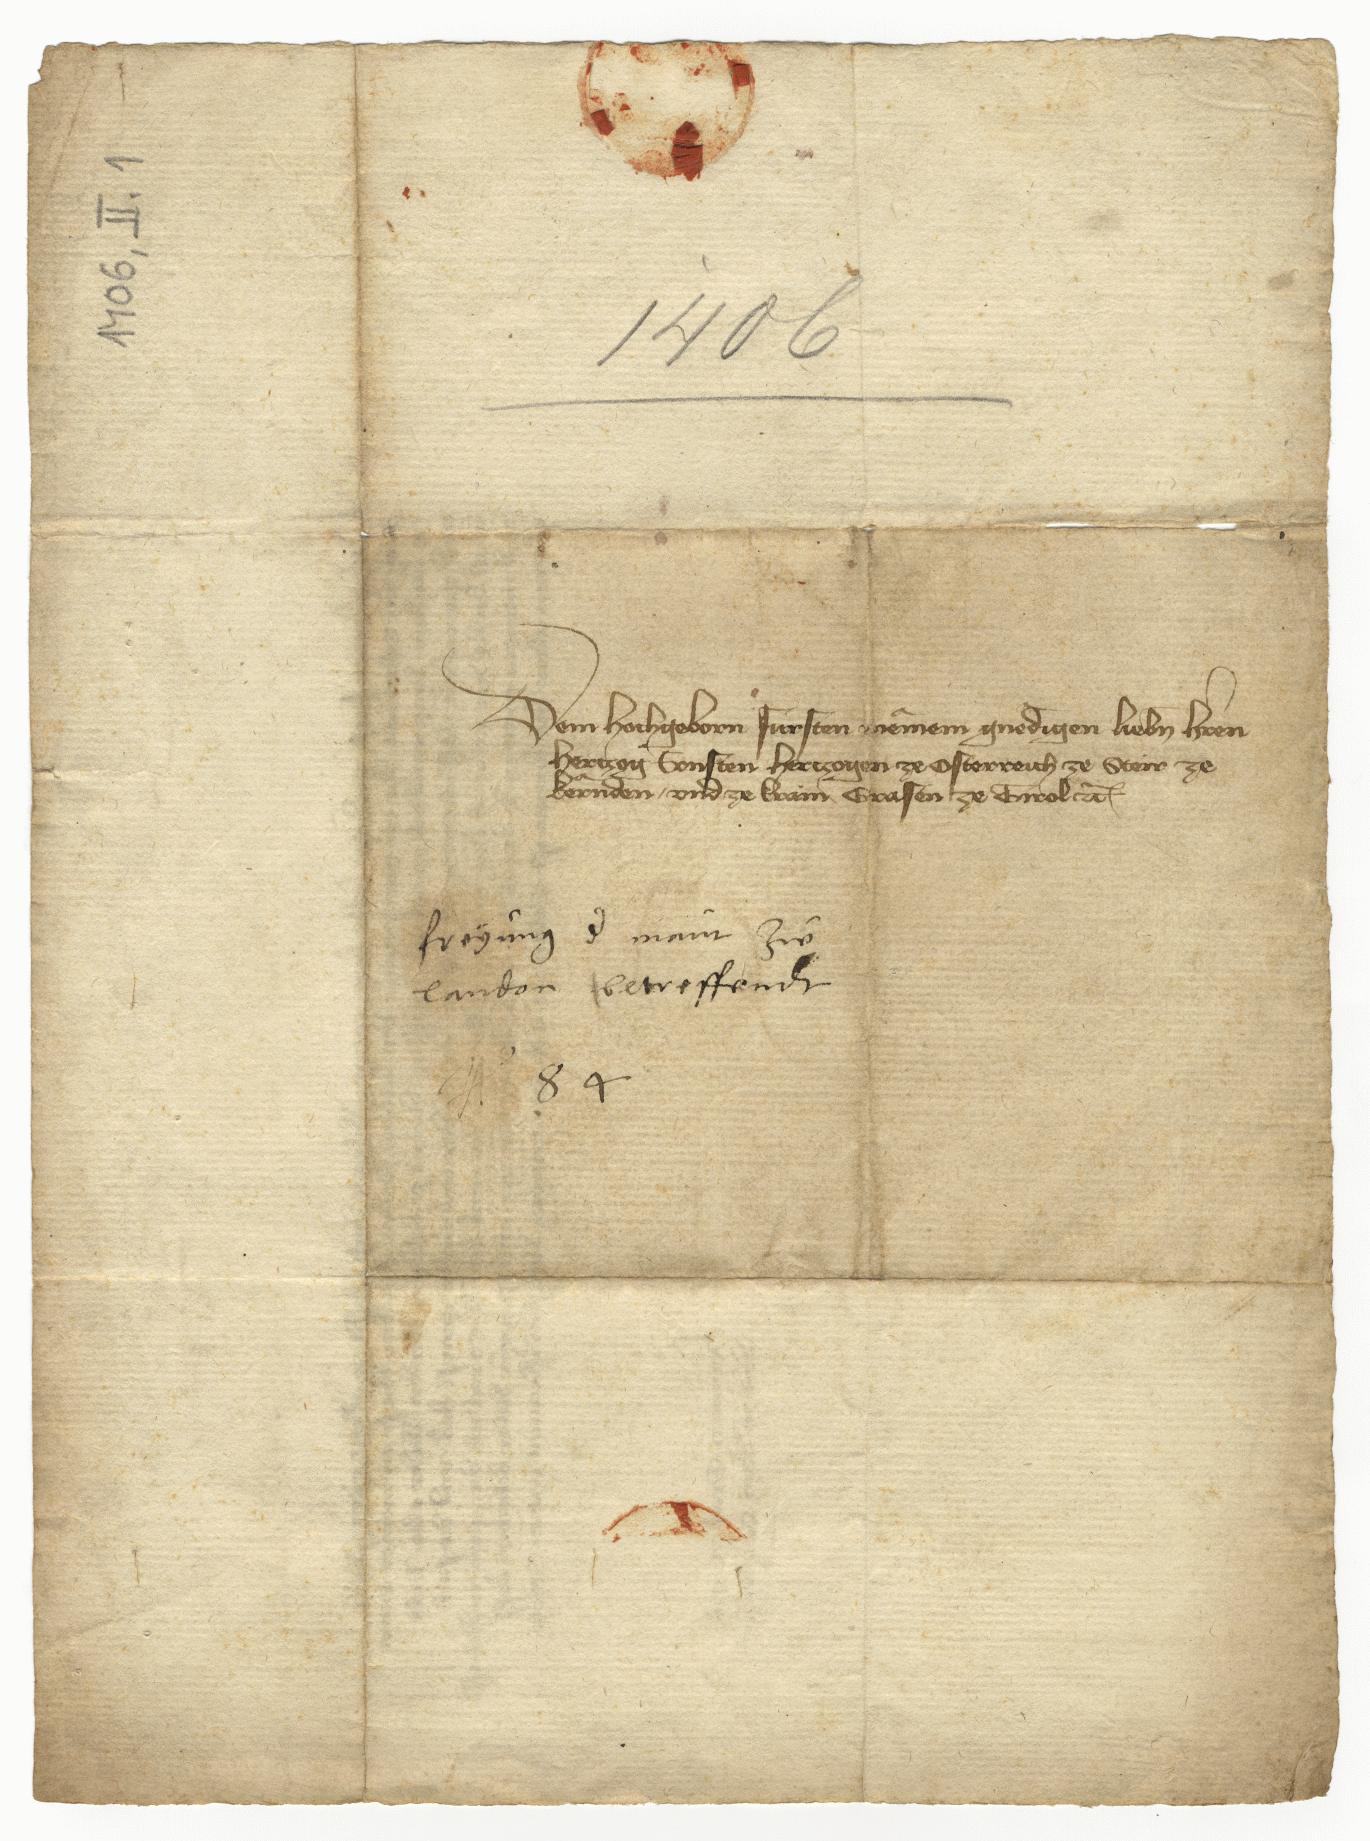 1406, II. 1
1406
Dem hochgeborn fürsten meinem gnedigen liebn hren
hertzog Ernsten hertzogen ze Osterreich ze Steir ze
kernden / vnd ze krain Grafen ze Tirol etc
freyung d maut zw
landon betreffendt
84